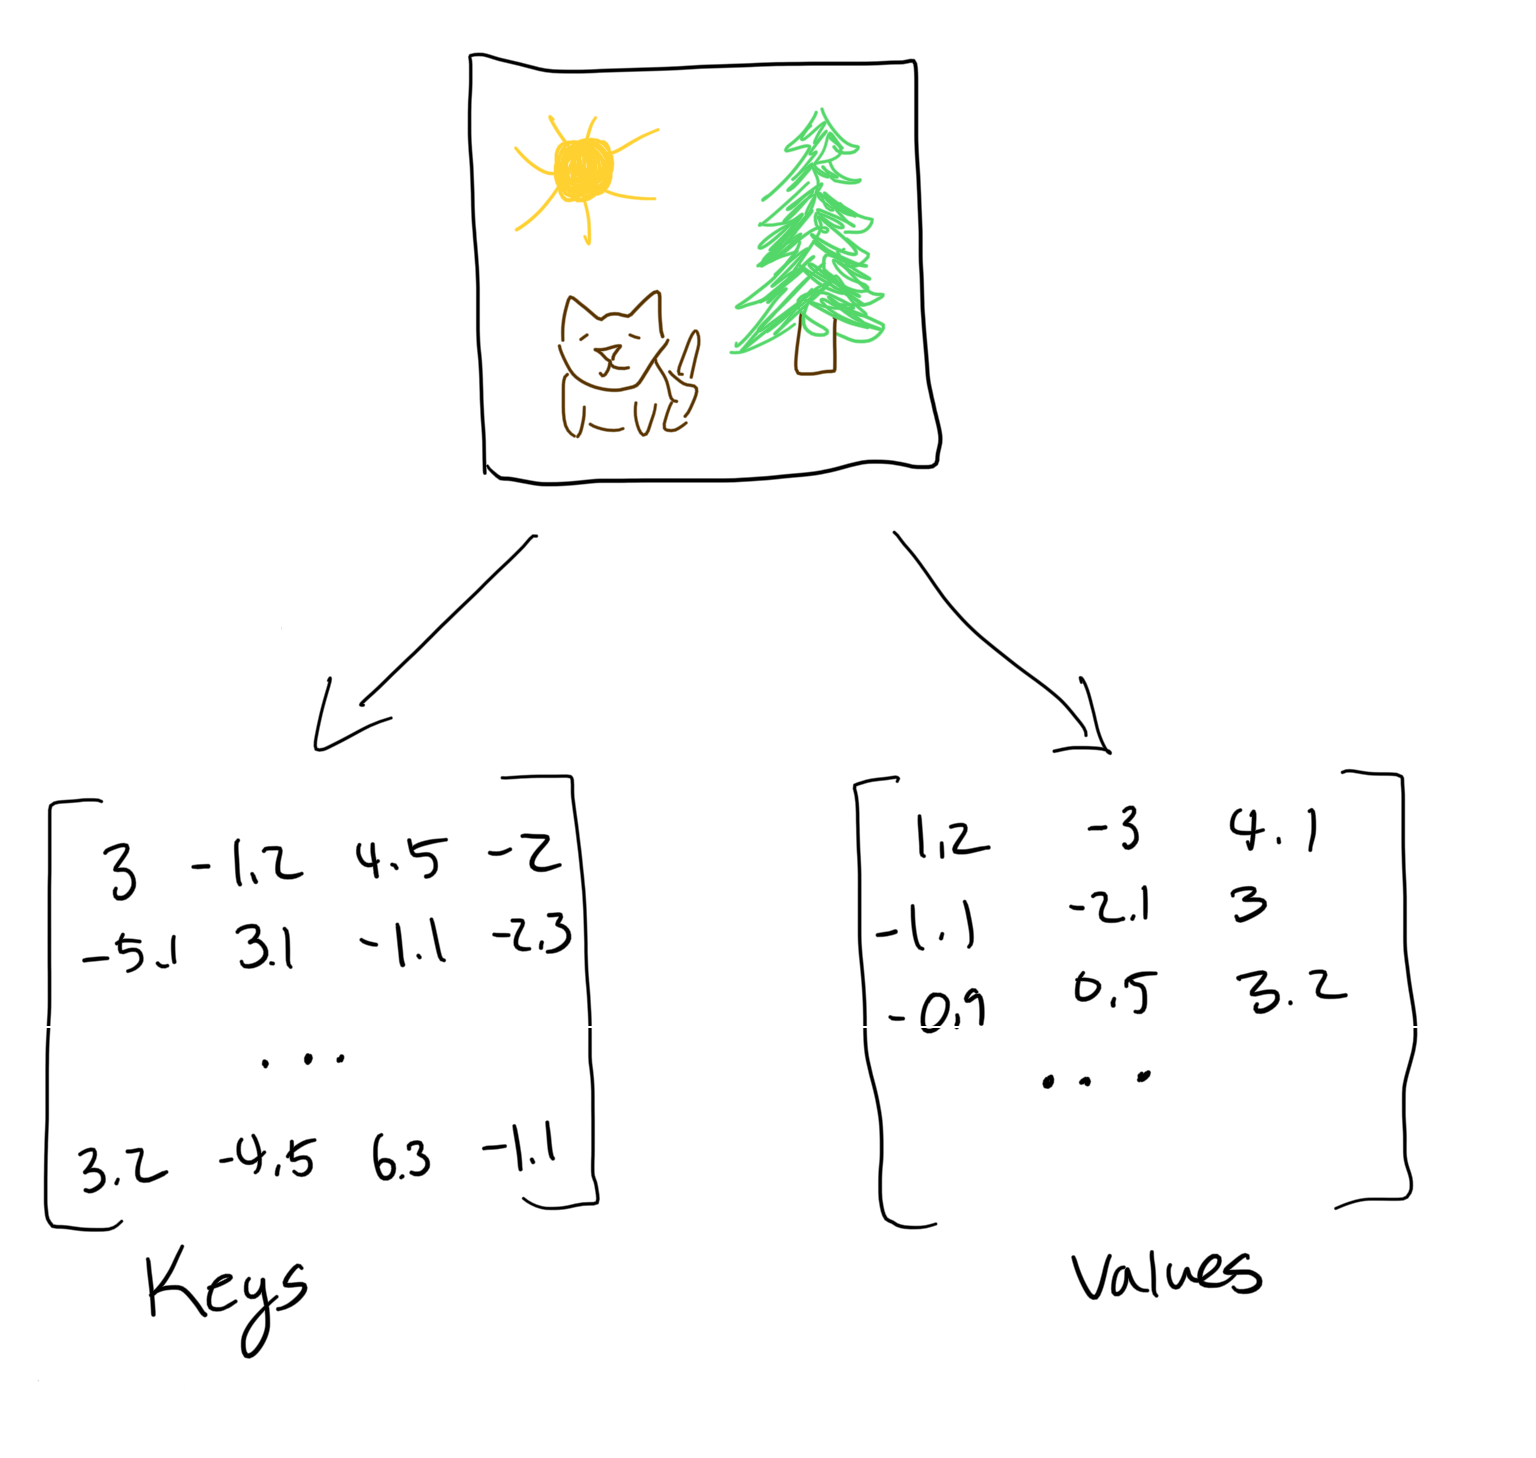 3 -1.2 4.5 -2
-5.1 3.1 -1.1 -2.3
...
3.2 -4.5 6.3 -1.1
Keys
1.2 -3 4.1
-1.1 -2.1 3
-0.9 0.5 3.2
...
Values